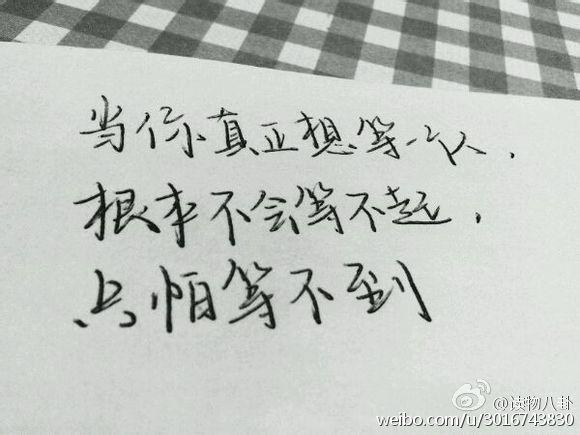 当你真正想等一个人，
根本不会等不起，
只怕等不到
@读物八卦
weibo.com/u/3016743830